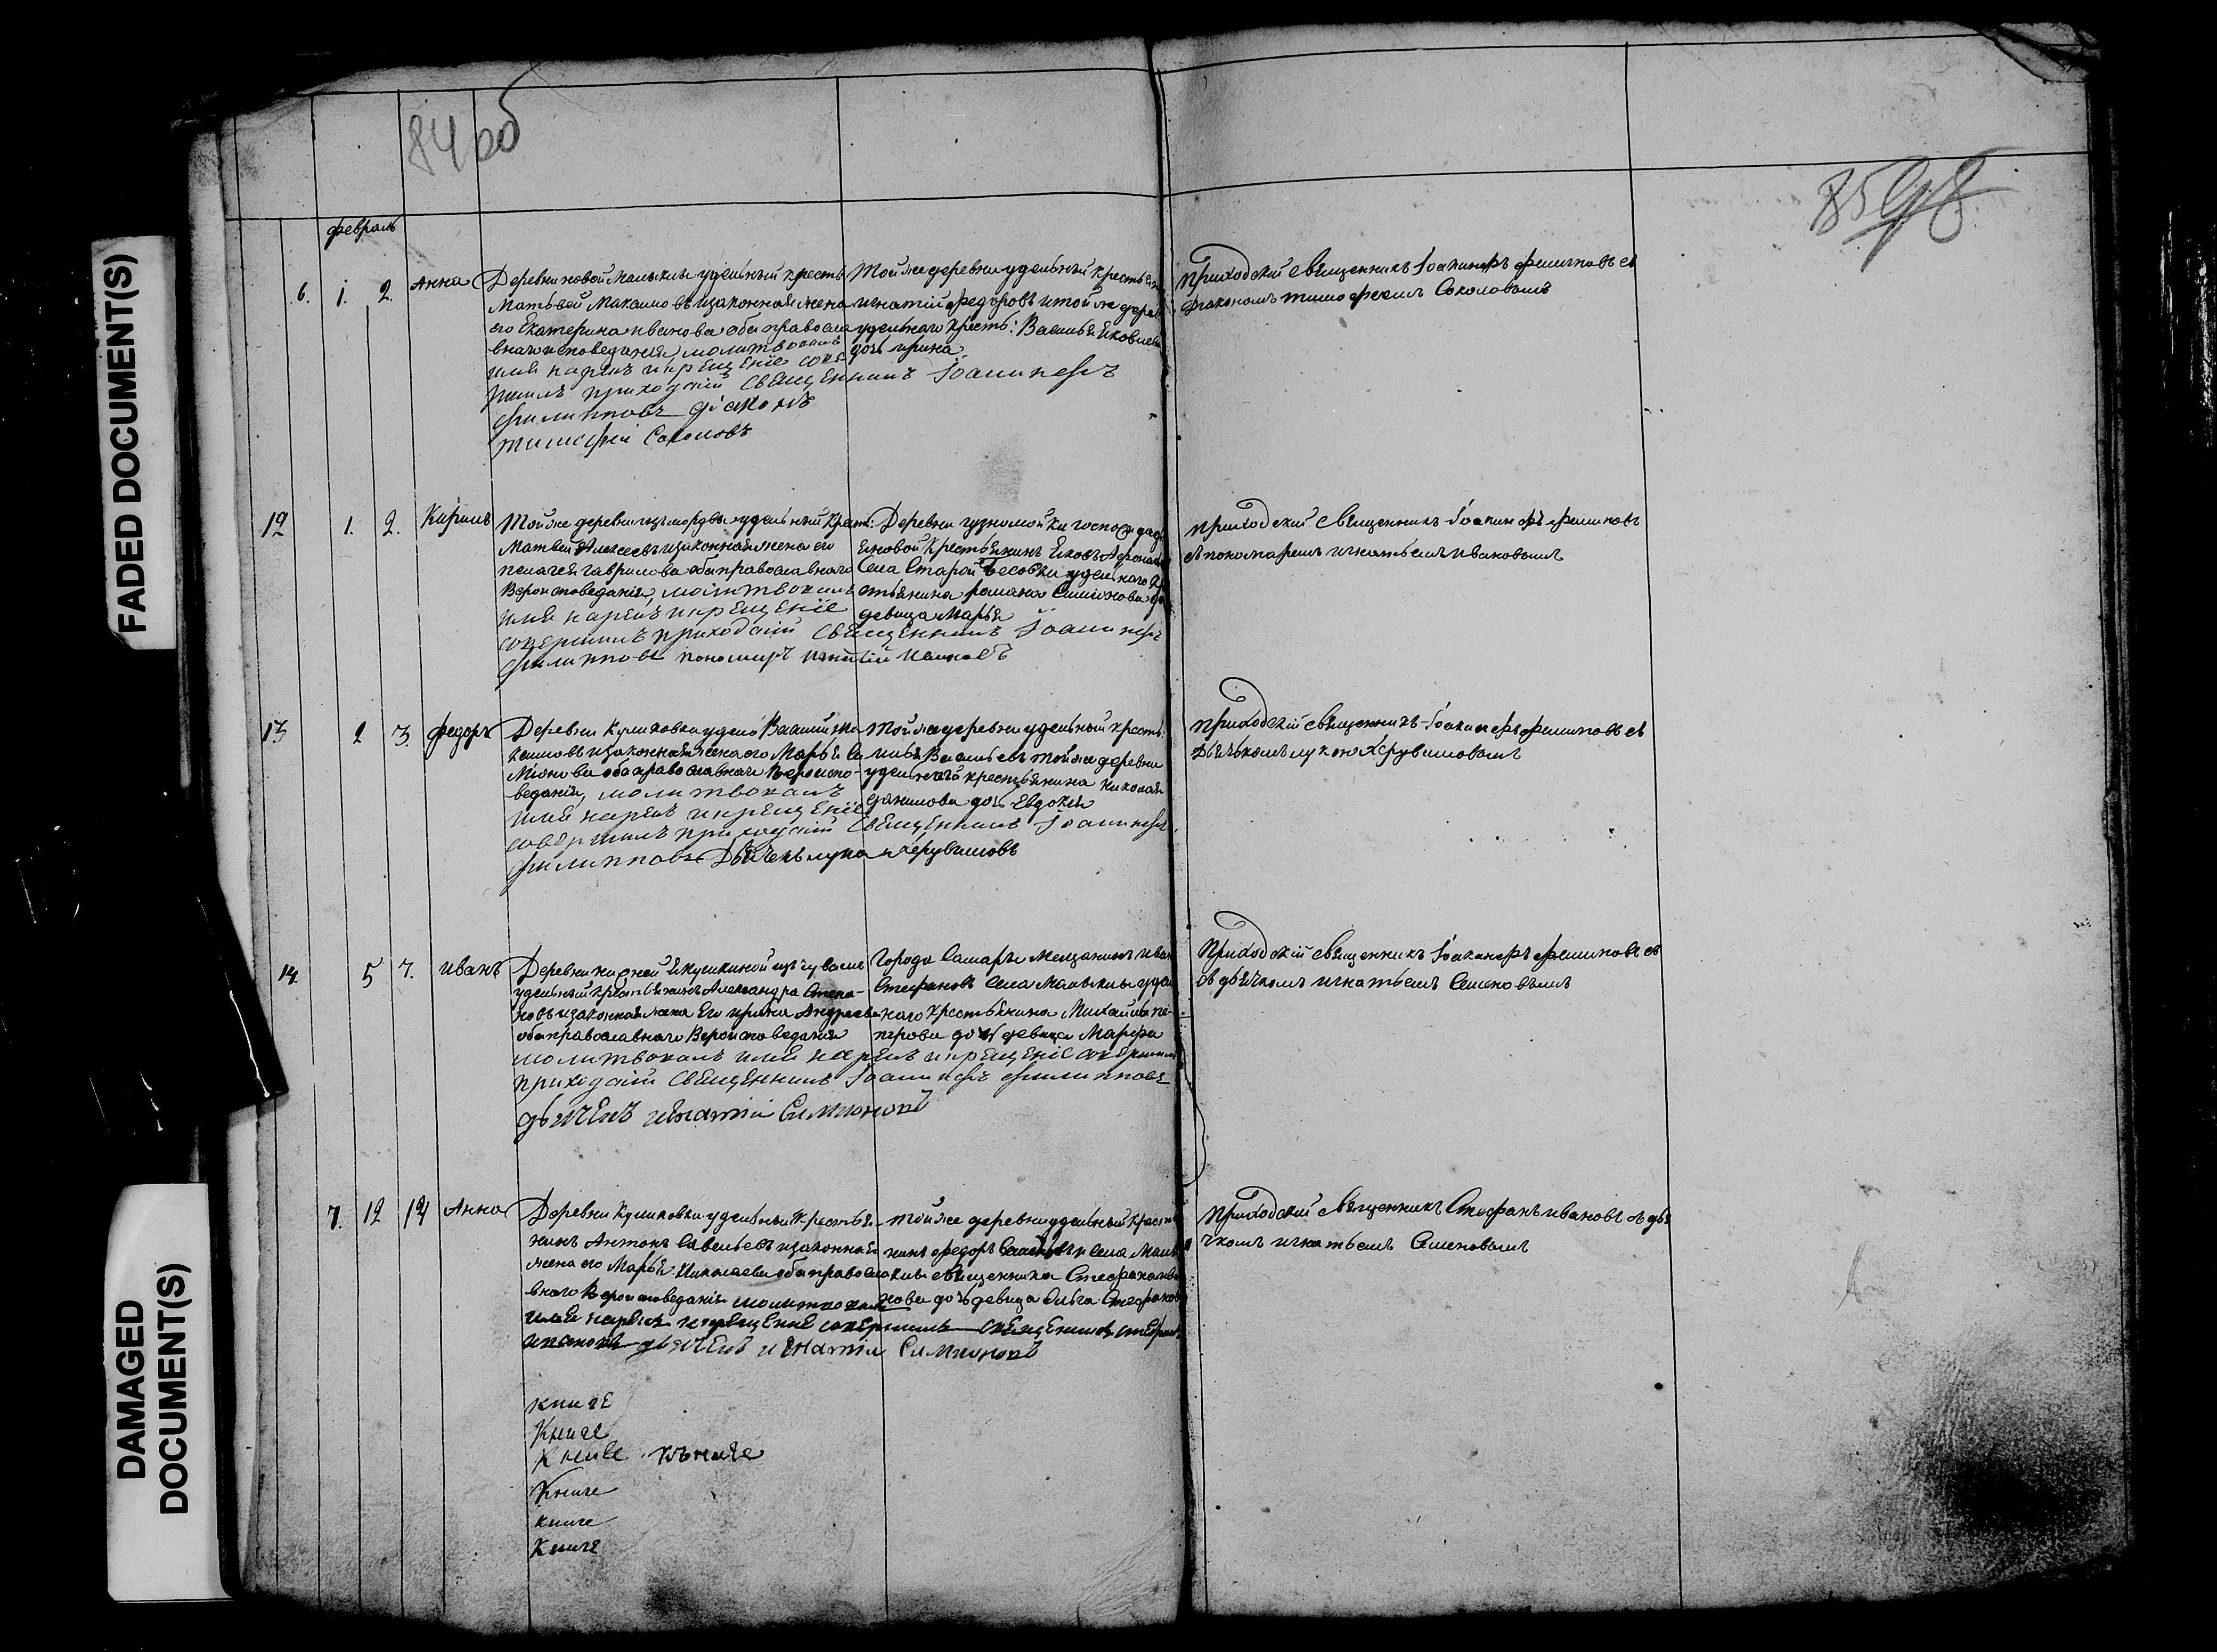 FADED DOCUMENT(S)
DAMAGED DOCUMENT(S)
84 об
85
февраль
6. 1. 2. Анна
Деревни новой Малыклы удельный крестья
Матвей Макаловъ изаконная жена
его Екатерина иванова оба правосла
внаго исповедания, молитвовалъ
имя нарекъ и крещенiе сове
ршилъ приходскiй священникъ Iоакинфъ
филипповъ дiаконъ
тимофей Соколовъ
Той же деревни удельный крестьян
игнатiй федоровъ и той же дерев
удельнаго кресть: Василья Яковлев
дочь ирина
приходскiй священникъ Iоакинфъ филиповъ съ
дiакономъ тимофеемъ Соколовымъ
12 1. 2. Кирилъ
Той же деревни изъ мордвы удельный крест:
Матвей Алексеевъ изаконная жена его
пелагея гаврилова оба православнаго
Вероисповедания, молитвовалъ
имя нарекъ и крещенiе
совершилъ приходскiй священникъ Iоакинфъ
филипповъ пономарь игнатiй ивановъ
Деревни
крестьянинъ Яковъ
села Старой удельнаго
стьянина романа Симионова
девица Марья
приходский священникъ Iоакинфъ филиповъ
съ пономаремъ игнатьемъ ивановымъ
13 2 3. федоръ
Деревни Куликовки удело Василий
изаконная жена его Марья Се
мiонова оба православнаго вероиспо-
ведания, молитвовалъ
имя нарекъ и крещенiе
совершилъ приходскiй священникъ Iоакинфъ
филипповъ Дьячекъ лука херувимовъ
Той же деревни удельный кресть:
Васильевъ той же деревни
удельнаго крестьянина николая
данилова дочь Евдокия
приходскiй священникъ Iоакинфъ филиповъ съ
Дьячькомъ лукою херувимовымъ
14 5 7. иванъ
Деревни нижней Якушкиной изъ чувашъ
удельный крестьянинъ Александра Степа-
новъ изаконная жена Его ирина Андреева
оба православнаго Вероисповедания
молитвовалъ имя нарекъ и крещенiе совершилъ
приходскiй священникъ Iоакинфъ филипповъ
дьячекъ игнатiй Симионовъ
Города Самары Мещанинъ иван
Стефановъ села Малыклы удел
наго крестьянина Михайлы пе-
трова дочь девица Марфа
Приходскiй священникъ Iоакинфъ филиповъ съ
съ дьячкомъ игнатьемъ Семеновымъ
7. 12 14 Анна
Деревни Куликовки удельный крестья
нинъ Антонъ Савельевъ изаконная
жена его Марья Николаева оба правосла
внаго Вероисповедания молитвовалъ
имя нарекъ и крещенiе совершилъ священникъ стефанъ
ивановъ дьячекъ игнатiй Симионовъ
Той же деревни удельный крестья
нинъ федоръ и села Малы
клы священника Стефана ива
нова дочь девица Ольга Стефанова
приходский священникъ Стефанъ ивановъ съ дья
чкомъ игнатьемъ Семеновымъ
книге
Книге
Книге къниге
Книге
книге
Книге